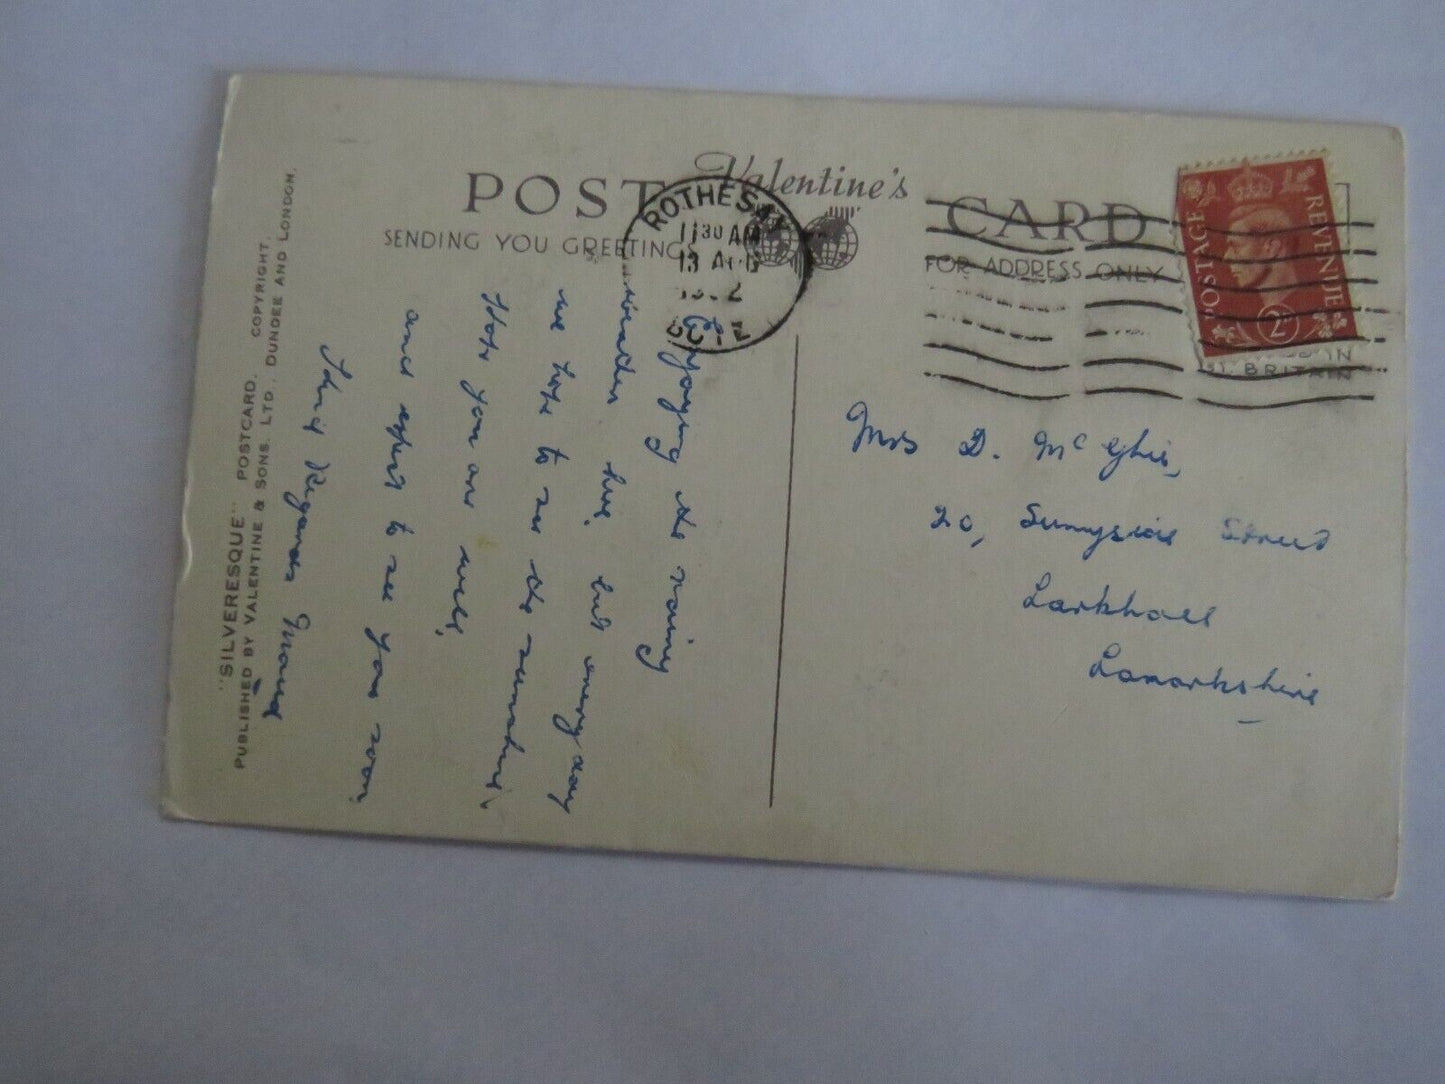 Valentine's
POST CARD
SENDING YOU GREETINGS
FOR ADDRESS ONLY
ROTHESAY
11 30 AM
13 AUG
2
BUTE
POSTAGE REVENUE
2
IN
BRITAIN
Enjoying the rainy
weather here, but every day
we hope to see the sunshine.
Hope you are well,
and expect to see you soon.
Kind Regards
Mrs D. McGhie,
20, Sunnyside Street
Larkhall
Lanarkshire
"SILVERESQUE" POSTCARD. COPYRIGHT.
PUBLISHED BY VALENTINE & SONS. LTD., DUNDEE AND LONDON.